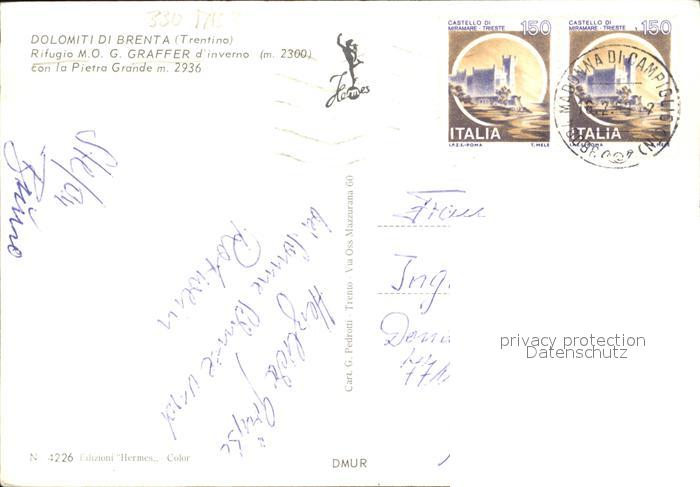 330
DOLOMITI DI BRENTA (Trentino)
Rifugio M.O. G. GRAFFER d'inverno (m. 2300)
con la Pietra Grande m. 2936
Hermes
CASTELLO DI
MIRAMARE - TRIESTE
150
ITALIA
I.P.Z.S.-ROMA T. MELE
CASTELLO DI
MIRAMARE - TRIESTE
150
ITALIA
T. MELE
MADONNA DI CAMPIGLIO (TN)
Herzliche Grüße
bei Sonne und
Rotwein
Cart. G. Pedrotti - Trento - Via Oss Mazzurana 60
Frau
Ing
privacy protection
Datenschutz
N 4226 Edizioni "Hermes,, Color
DMUR